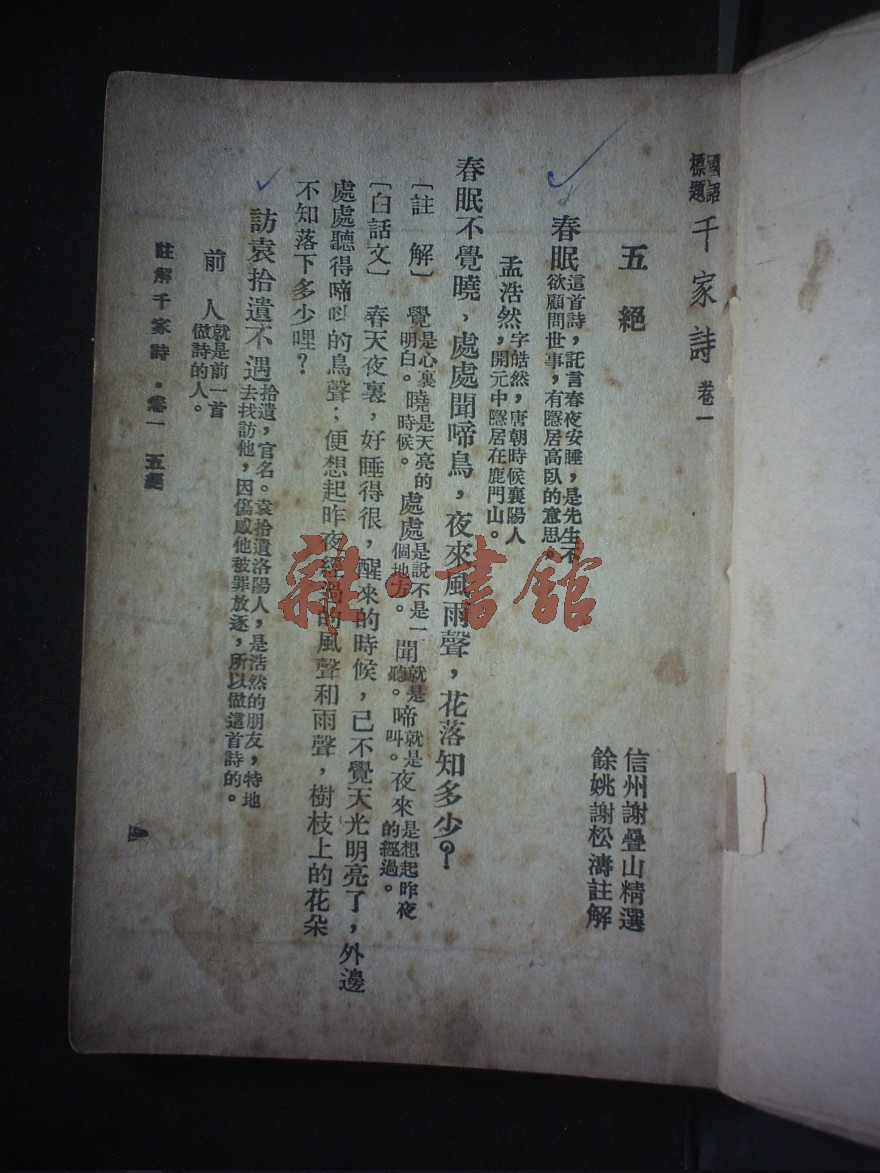 國語
標題
千家詩 卷一
信州謝疊山精選
餘姚謝松濤註解
五絕
春眠 這首詩，託言春夜安睡，是先生不
欲顧問世事，有隱居高臥的意思。
孟浩然，字皓然，唐朝時候襄陽人
，開元中隱居在鹿門山。
春眠不覺曉，處處聞啼鳥，夜來風雨聲，花落知多少？
［註解］ 覺 是心裏明白。 曉 是天亮的時候。 處處 是說不是一個地方。 聞 就是聽。 啼 就是叫。 夜來 是想起昨夜的經過。
［白話文］ 春天夜裏，好睡得很，醒來的時候，已不覺天光明亮了，外邊
處處聽得啼叫的鳥聲；便想起昨夜經過的風聲和雨聲，樹枝上的花朵
不知落下多少哩？
訪袁拾遺不遇 拾遺，官名。袁拾遺洛陽人，是浩然的朋友，特地
去找訪他，因傷感他被罪放逐，所以做這首詩的。
前人 就是前一首
做詩的人。
註解千家詩．卷一 五絕
一
雜·書館